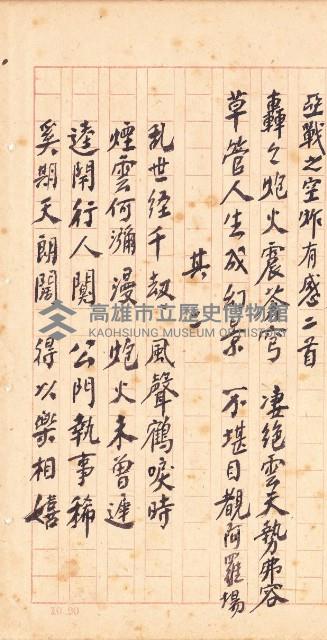 亞戰之空昨有感二首
轟々炮火震蒼穹　淒絕雲天勢弗容
草管人生成幻景　不堪目覩阿羅場
其二
乱世経千劫　風聲鶴唳時
煙雲何瀰漫　炮火未曾遲
逵閙行人闃　公門執事稀
奚期天朗闊　得以樂相嬉
高雄市立歷史博物館
KAOHSIUNG MUSEUM OF HISTORY